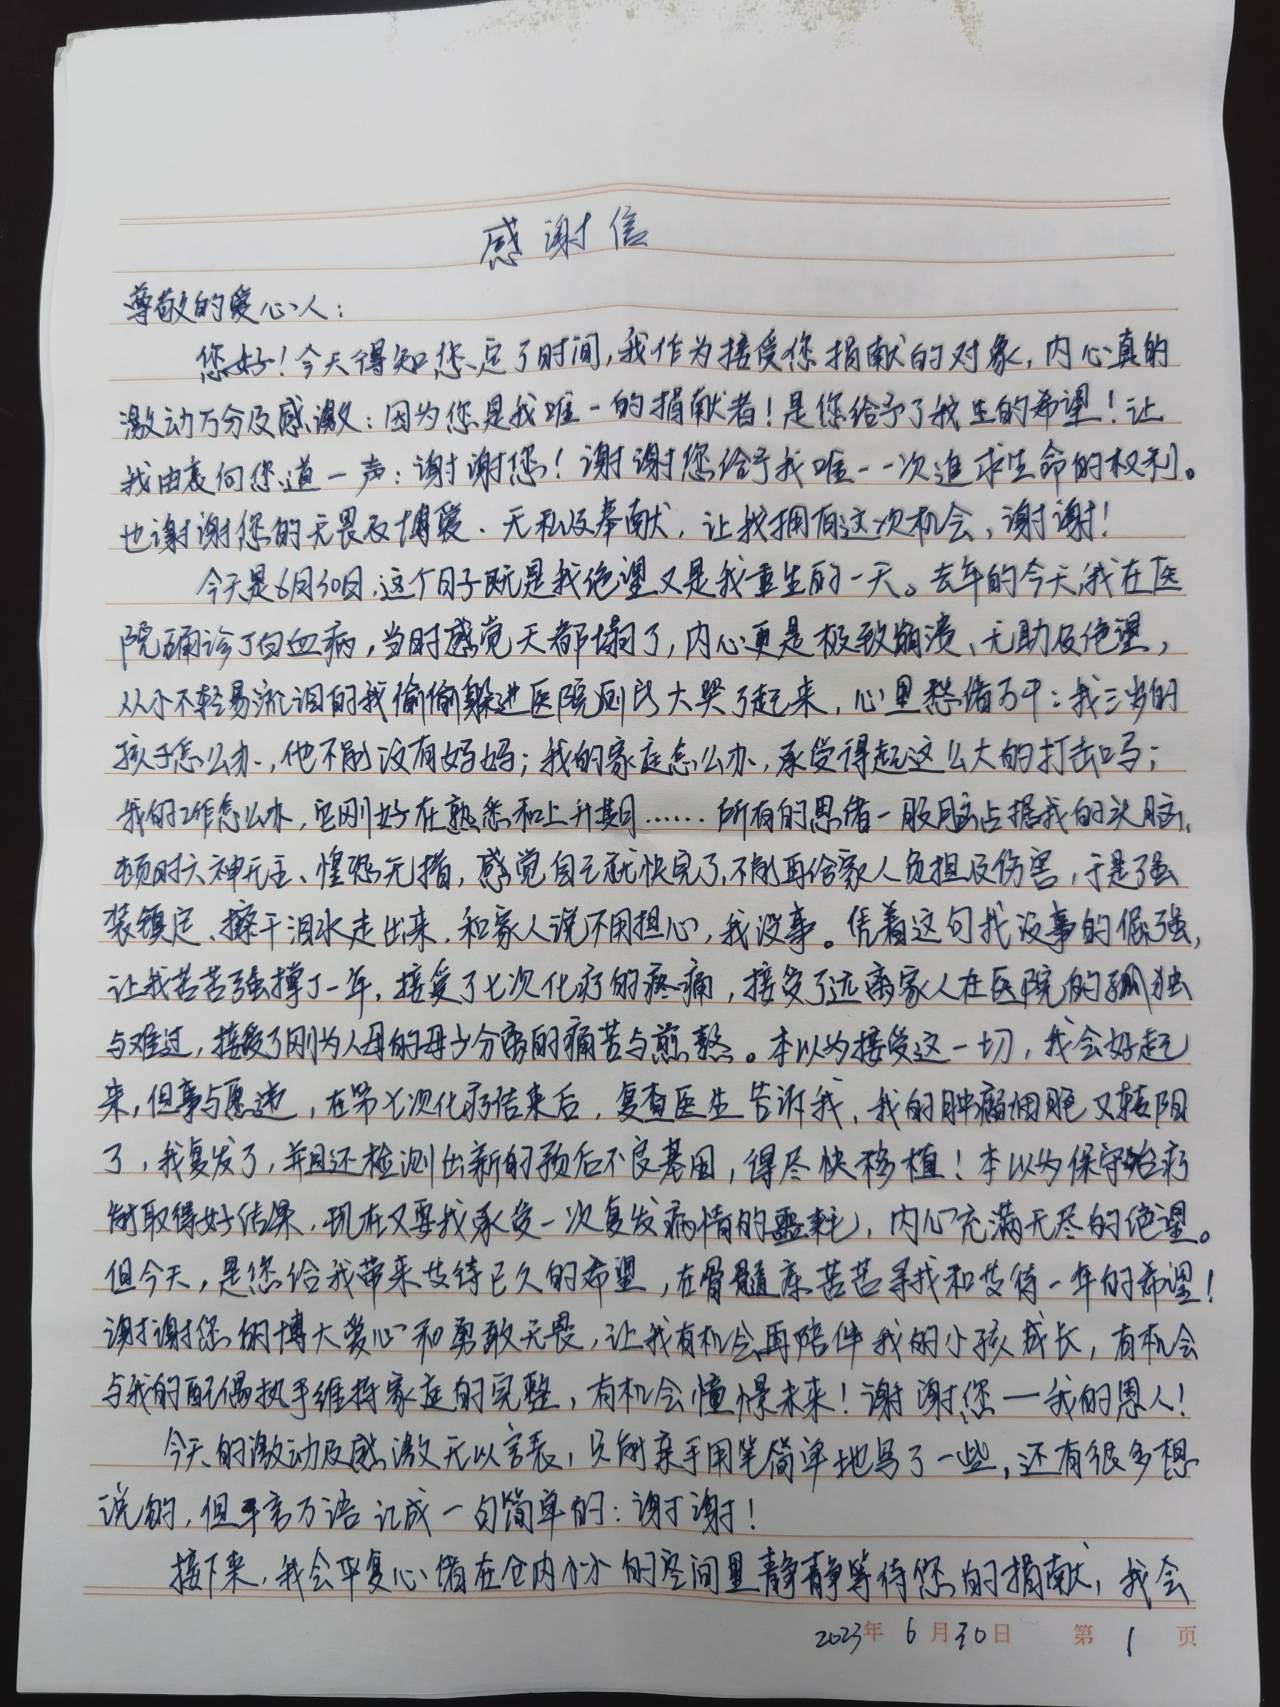 感谢信
尊敬的爱心人：
您好！今天得知您定了时间，我作为接受您捐献的对象，内心真的
激动万分及感激：因为您是我唯一的捐献者！是您给予了我生的希望！让
我由衷向您道一声：谢谢您！谢谢您给予我唯一一次追求生命的权利。
也谢谢您的无畏及博爱、无私及奉献，让我拥有这次机会，谢谢！
今天是6月30日，这个日子既是我绝望又是我重生的一天。去年的今天，我在医
院确诊了白血病，当时感觉天都塌了，内心更是极致崩溃、无助及绝望，
从小不轻易流泪的我偷偷躲进医院厕所大哭了起来，心里愁绪万千：我三岁的
孩子怎么办，他不能没有妈妈；我的家庭怎么办，承受得起这么大的打击吗；
我的工作怎么办，它刚好在熟悉和上升期……所有的思绪一股脑占据我的头脑，
顿时六神无主、惶恐无措，感觉自己就快完了，不能再给家人负担及伤害，于是强
装镇定、擦干泪水走出来，和家人说不用担心，我没事。凭着这句我没事的倔强，
让我苦苦强撑了一年，接受了七次化疗的疼痛，接受了远离家人在医院的孤独
与难过，接受了刚为人母的母子分离的痛苦与煎熬。本以为接受这一切，我会好起
来，但事与愿违，在第七次化疗结束后，复查医生告诉我，我的肿瘤细胞又转阳
了，我复发了，并且还检测出新的预后不良基因，得尽快移植！本以为保守治疗
能取得好结果，现在又要我承受一次复发病情的噩耗，内心充满无尽的绝望。
但今天，是您给我带来期待已久的希望，在骨髓库苦苦寻找和期待一年的希望！
谢谢您的博大爱心和勇敢无畏，让我有机会再陪伴我的小孩成长，有机会
与我的配偶执手维持家庭的完整，有机会憧憬未来！谢谢您——我的恩人！
今天的激动及感激无以言表，只能亲手用笔简单地写了一些，还有很多想
说的，但千言万语汇成一句简单的：谢谢！
接下来，我会平复心绪在仓内小小的空间里静静等待您的捐献，我会
2023年6月30日 第1页